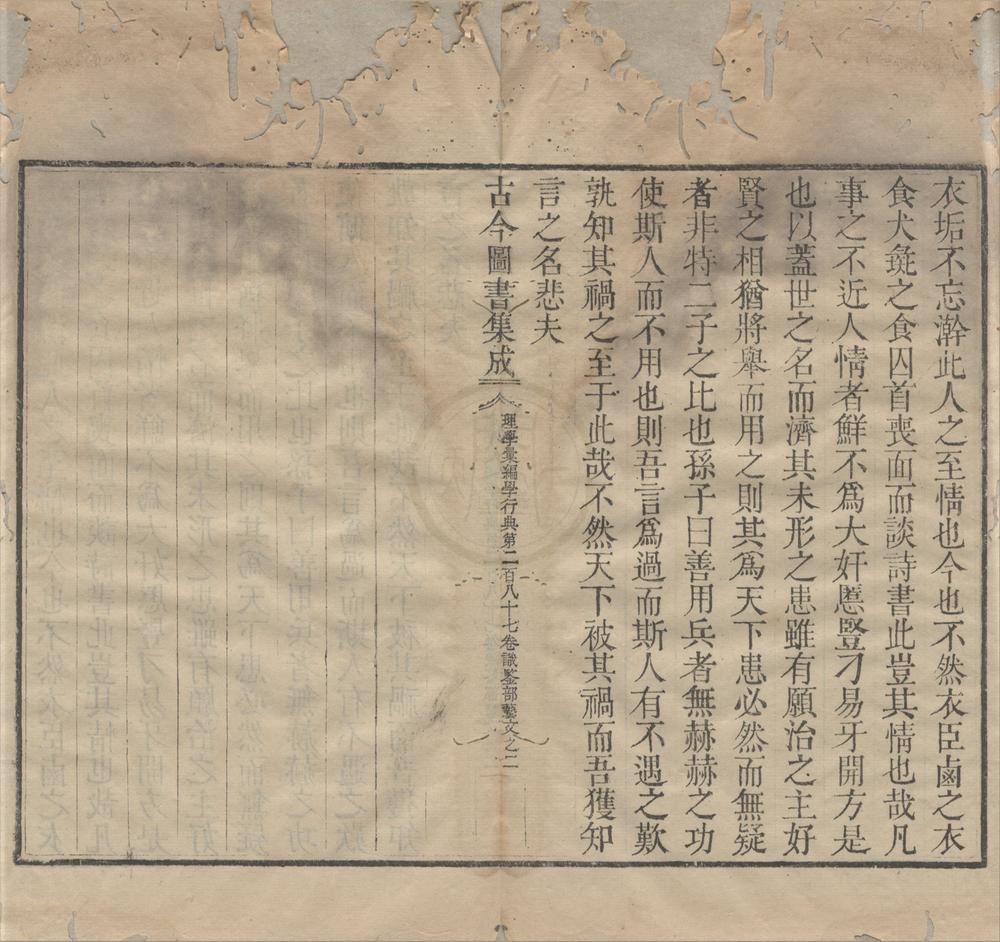 衣垢不忘澣此人之至情也今也不然衣臣鹵之衣
食犬彘之食囚首喪面而談詩書此豈其情也哉凡
事之不近人情者鮮不爲大奸慝豎刁易牙開方是
也以蓋世之名而濟其未形之患雖有願治之主好
賢之相猶將舉而用之則其爲天下患必然而無疑
者非特二子之比也孫子曰善用兵者無赫赫之功
使斯人而不用也則吾言爲過而斯人有不遇之歎
孰知其禍之至于此哉不然天下被其禍而吾獲知
言之名悲夫
古今圖書集成
理學彙編學行典第二百八十七卷識鑒部藝文之二